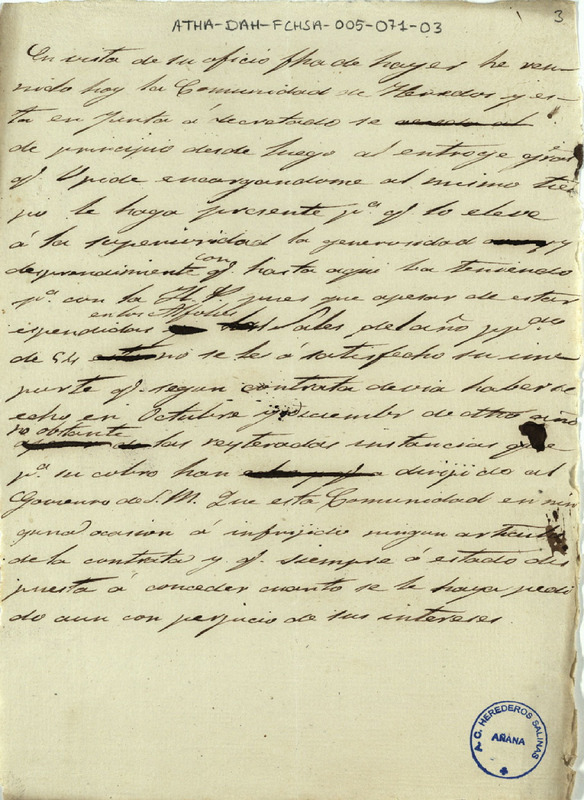 ATHA-DAH-FCHSA-005-071-03
3
En vista de su oficio fha de hayer he reu
nido hoy la Comunidad de Heredos y es
ta en Junta á decretado se
de principio desde luego al entroje gral
q.e V pide encargandome al mismo tiem
po le haga presente p.a q.e lo eleve
á la superioridad la generosidad y
desprendimiento con q.e hasta aqui ha tenido
p.a con la H. P. pues que apesar de estar
espendidas en los Alfolies Sales del año pp.do
de 54 no se le á satisfecho su im
porte q.e segun contrata devia haberse
echo en Octubre y Diciembre de dho año
no obstante las reyteradas instancias que
p.a su cobro han dirijido al
Govierno de S. M. Que esta Comunidad en nin
guna ocasion á infrinjido ningun articulo
de la contrata y q.e siempre á estado dis
puesta á conceder cuanto se le haya pedi
do aun con perjucio de sus intereses.
A. C. HEREDEROS SALINAS
AÑANA